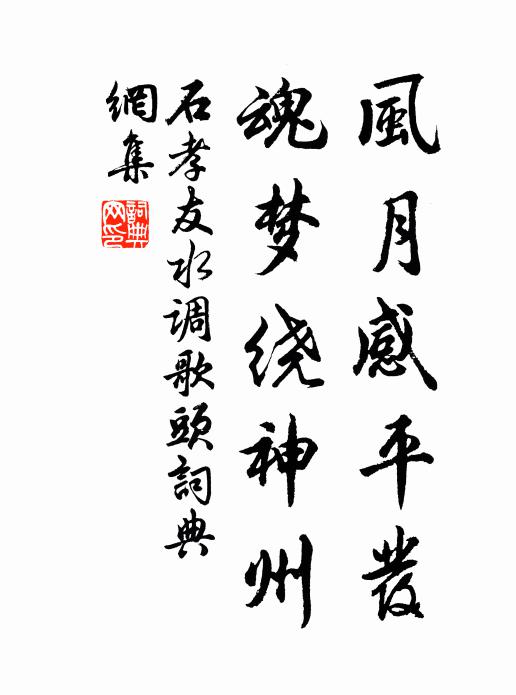 風月感平發
魂梦绕神州
石孝友水调歌頭詞典
網集
詞典網印